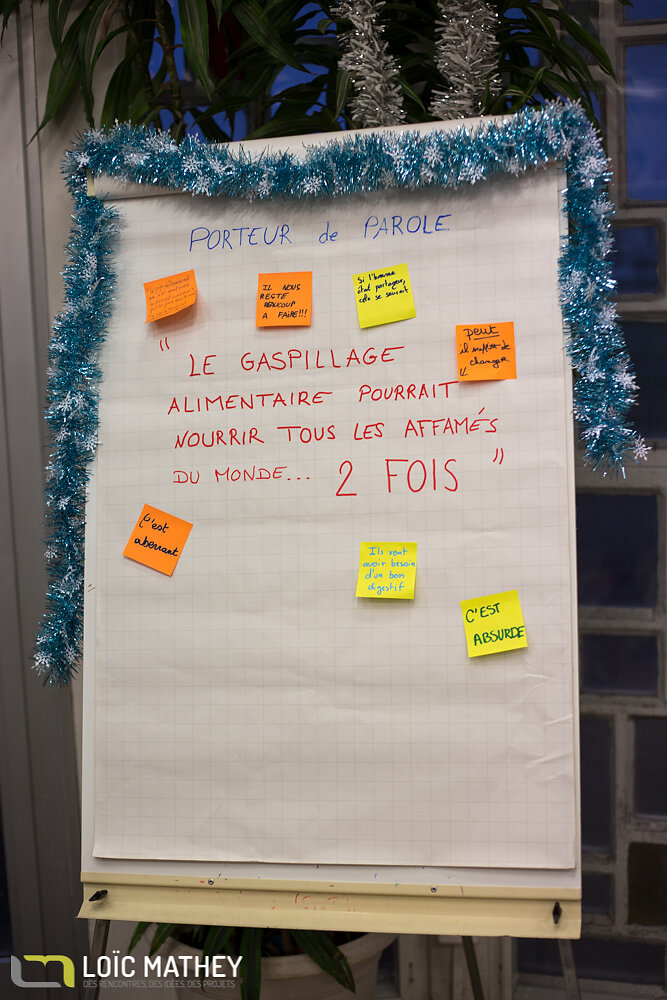 PORTEUR de PAROLE
IL NOUS
RESTE
BEAUCOUP
A FAIRE!!!
Si l'homme
était partageur,
cela se saurait
peut
il suffit de
changer
" LE GASPILLAGE
ALIMENTAIRE POURRAIT
NOURRIR TOUS LES AFFAMÉS
DU MONDE... 2 FOIS "
C'est
aberrant
Ils vont
avoir besoin
d'un bon
digestif
C'EST
ABSURDE
LOÏC MATHEY
DES RENCONTRES, DES IDÉES, DES PROJETS